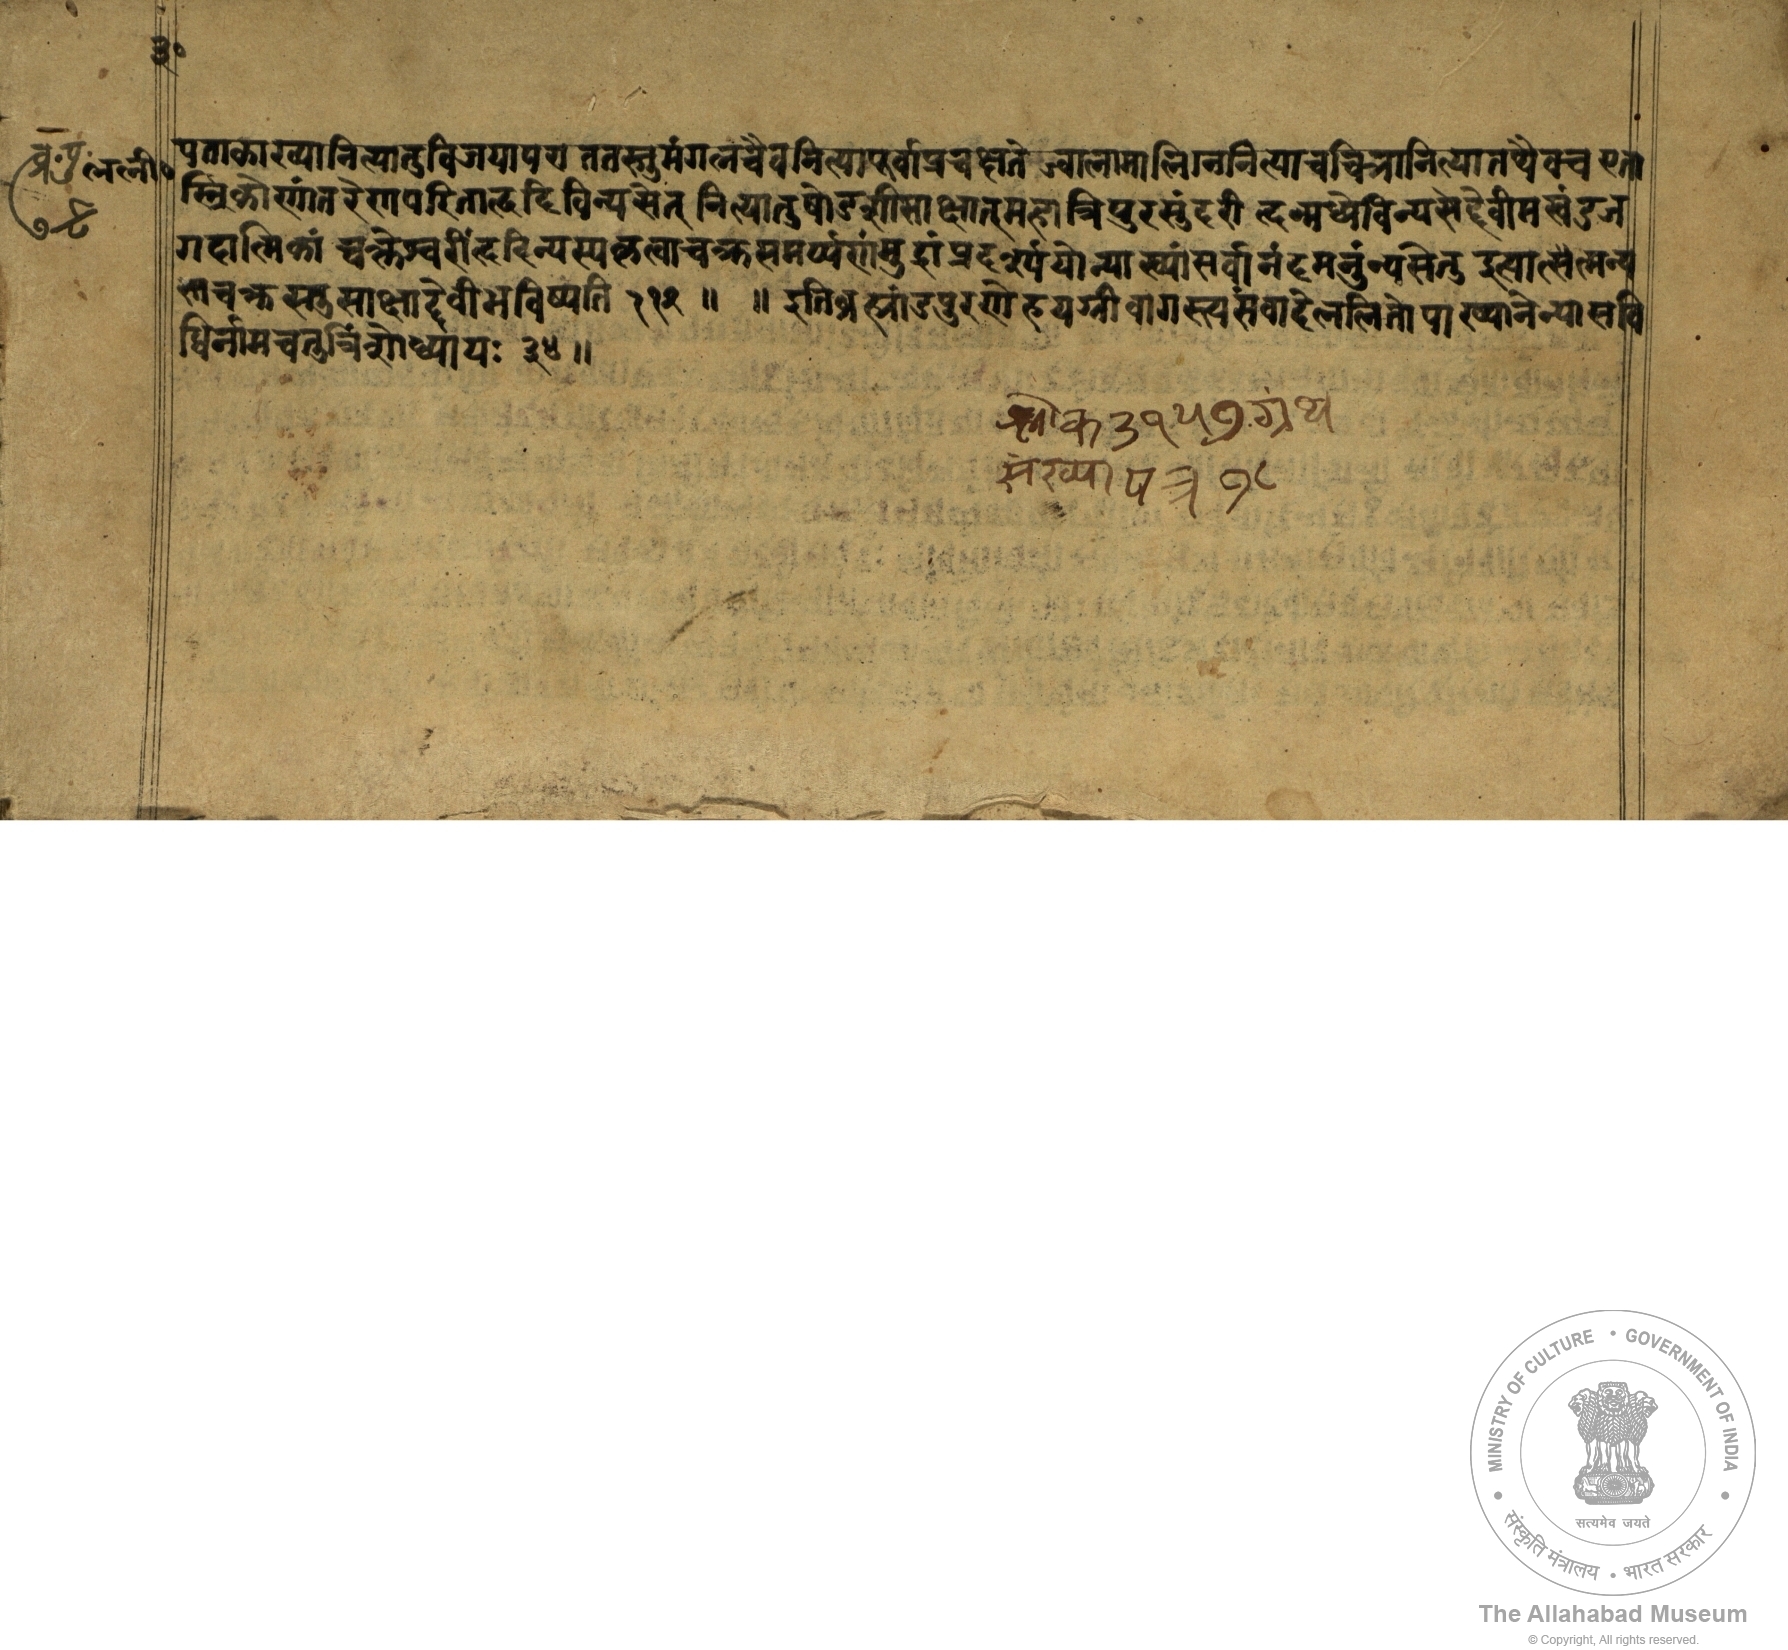 ३०
ब्र.पु. ललितो०
७८
पताकाख्यानित्यातुविजयापरा ततस्तुमंगलचैवनित्यापूर्वाप्रचक्षते ज्वालामालिनिनित्याचचित्रानित्यातथैवच एता
स्त्रिकोणांतरेणपरितोहृदि विन्यसेत् नित्यातुषोडशीसाक्षात्महात्रिपुरसुंदरी हृन्मध्येविन्यसेद्देवीमखंडज
गदात्मिकां चक्रेश्वरींहृदिन्यस्यकृत्वाचक्रसमर्प्पणंमुद्रांप्रदर्श्ययोन्याख्यांसर्वानंदमनुंन्यसेत्तु इत्यात्मैत्मन्य
चक्रस्तुसाक्षाद्देवीभविष्यति ॥ ॥ इतिब्रह्मांडपुराणेहयग्रीवागस्त्यसंवादेललितोपाख्यानेन्यासवि
धिर्नामचतुस्त्रिंशोध्यायः ३४ ॥
श्लोक ३१५७ ग्रंथ
संख्या पत्र ७८
MINISTRY OF CULTURE • GOVERNMENT OF INDIA
सत्यमेव जयते
संस्कृति मंत्रालय • भारत सरकार
The Allahabad Museum
© Copyright, All rights reserved.